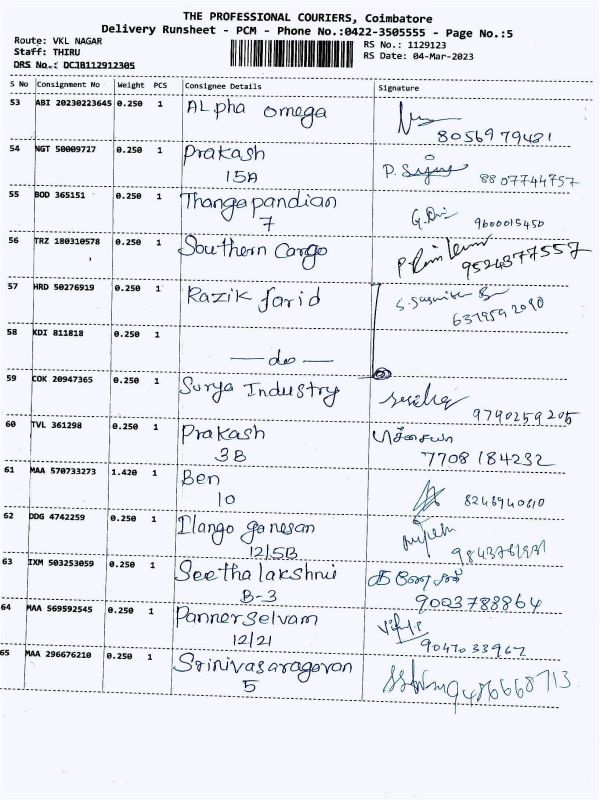 THE PROFESSIONAL COURIERS, Coimbatore
Delivery Runsheet - PCM - Phone No.:0422-3505555 - Page No.:5
Route: VKL NAGAR
Staff: THIRU
DRS No.: DCJB112912305
RS No.: 1129123
RS Date: 04-Mar-2023
S No Consignment No Weight PCS Consignee Details Signature
53 ABI 20230223645 0.250 1 ALpha omega
8056979421
54 NGT 50009727 0.250 1 Prakash
15A
8807744757
55 BOD 365151 0.250 1 Thangapandian
7
9600015450
56 TRZ 180310578 0.250 1 Southern Cargo
9524377557
57 HRD 50276919 0.250 1 Razik farid
6379592090
58 KDI 811818 0.250 1
— do —
59 COK 20947365 0.250 1 Surya Industry
9790259205
60 TVL 361298 0.250 1 Prakash
3B
7708184232
61 MAA 570733273 1.420 1 Ben
10
62 DDG 4742259 0.250 1 Ilango ganesan
12/5B
63 IXM 503253059 0.250 1 Seethalakshmi
B-3
9003788864
64 MAA 569592545 0.250 1 Pannerselvam
12/21
9047033962
65 MAA 296676210 0.250 1 Srinivasaragavan
5
9486668713